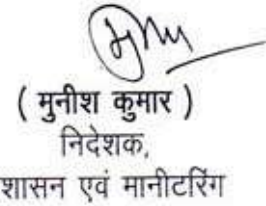 ( मुनीश कुमार )
निदेशक,
शासन एवं मानीटरिंग